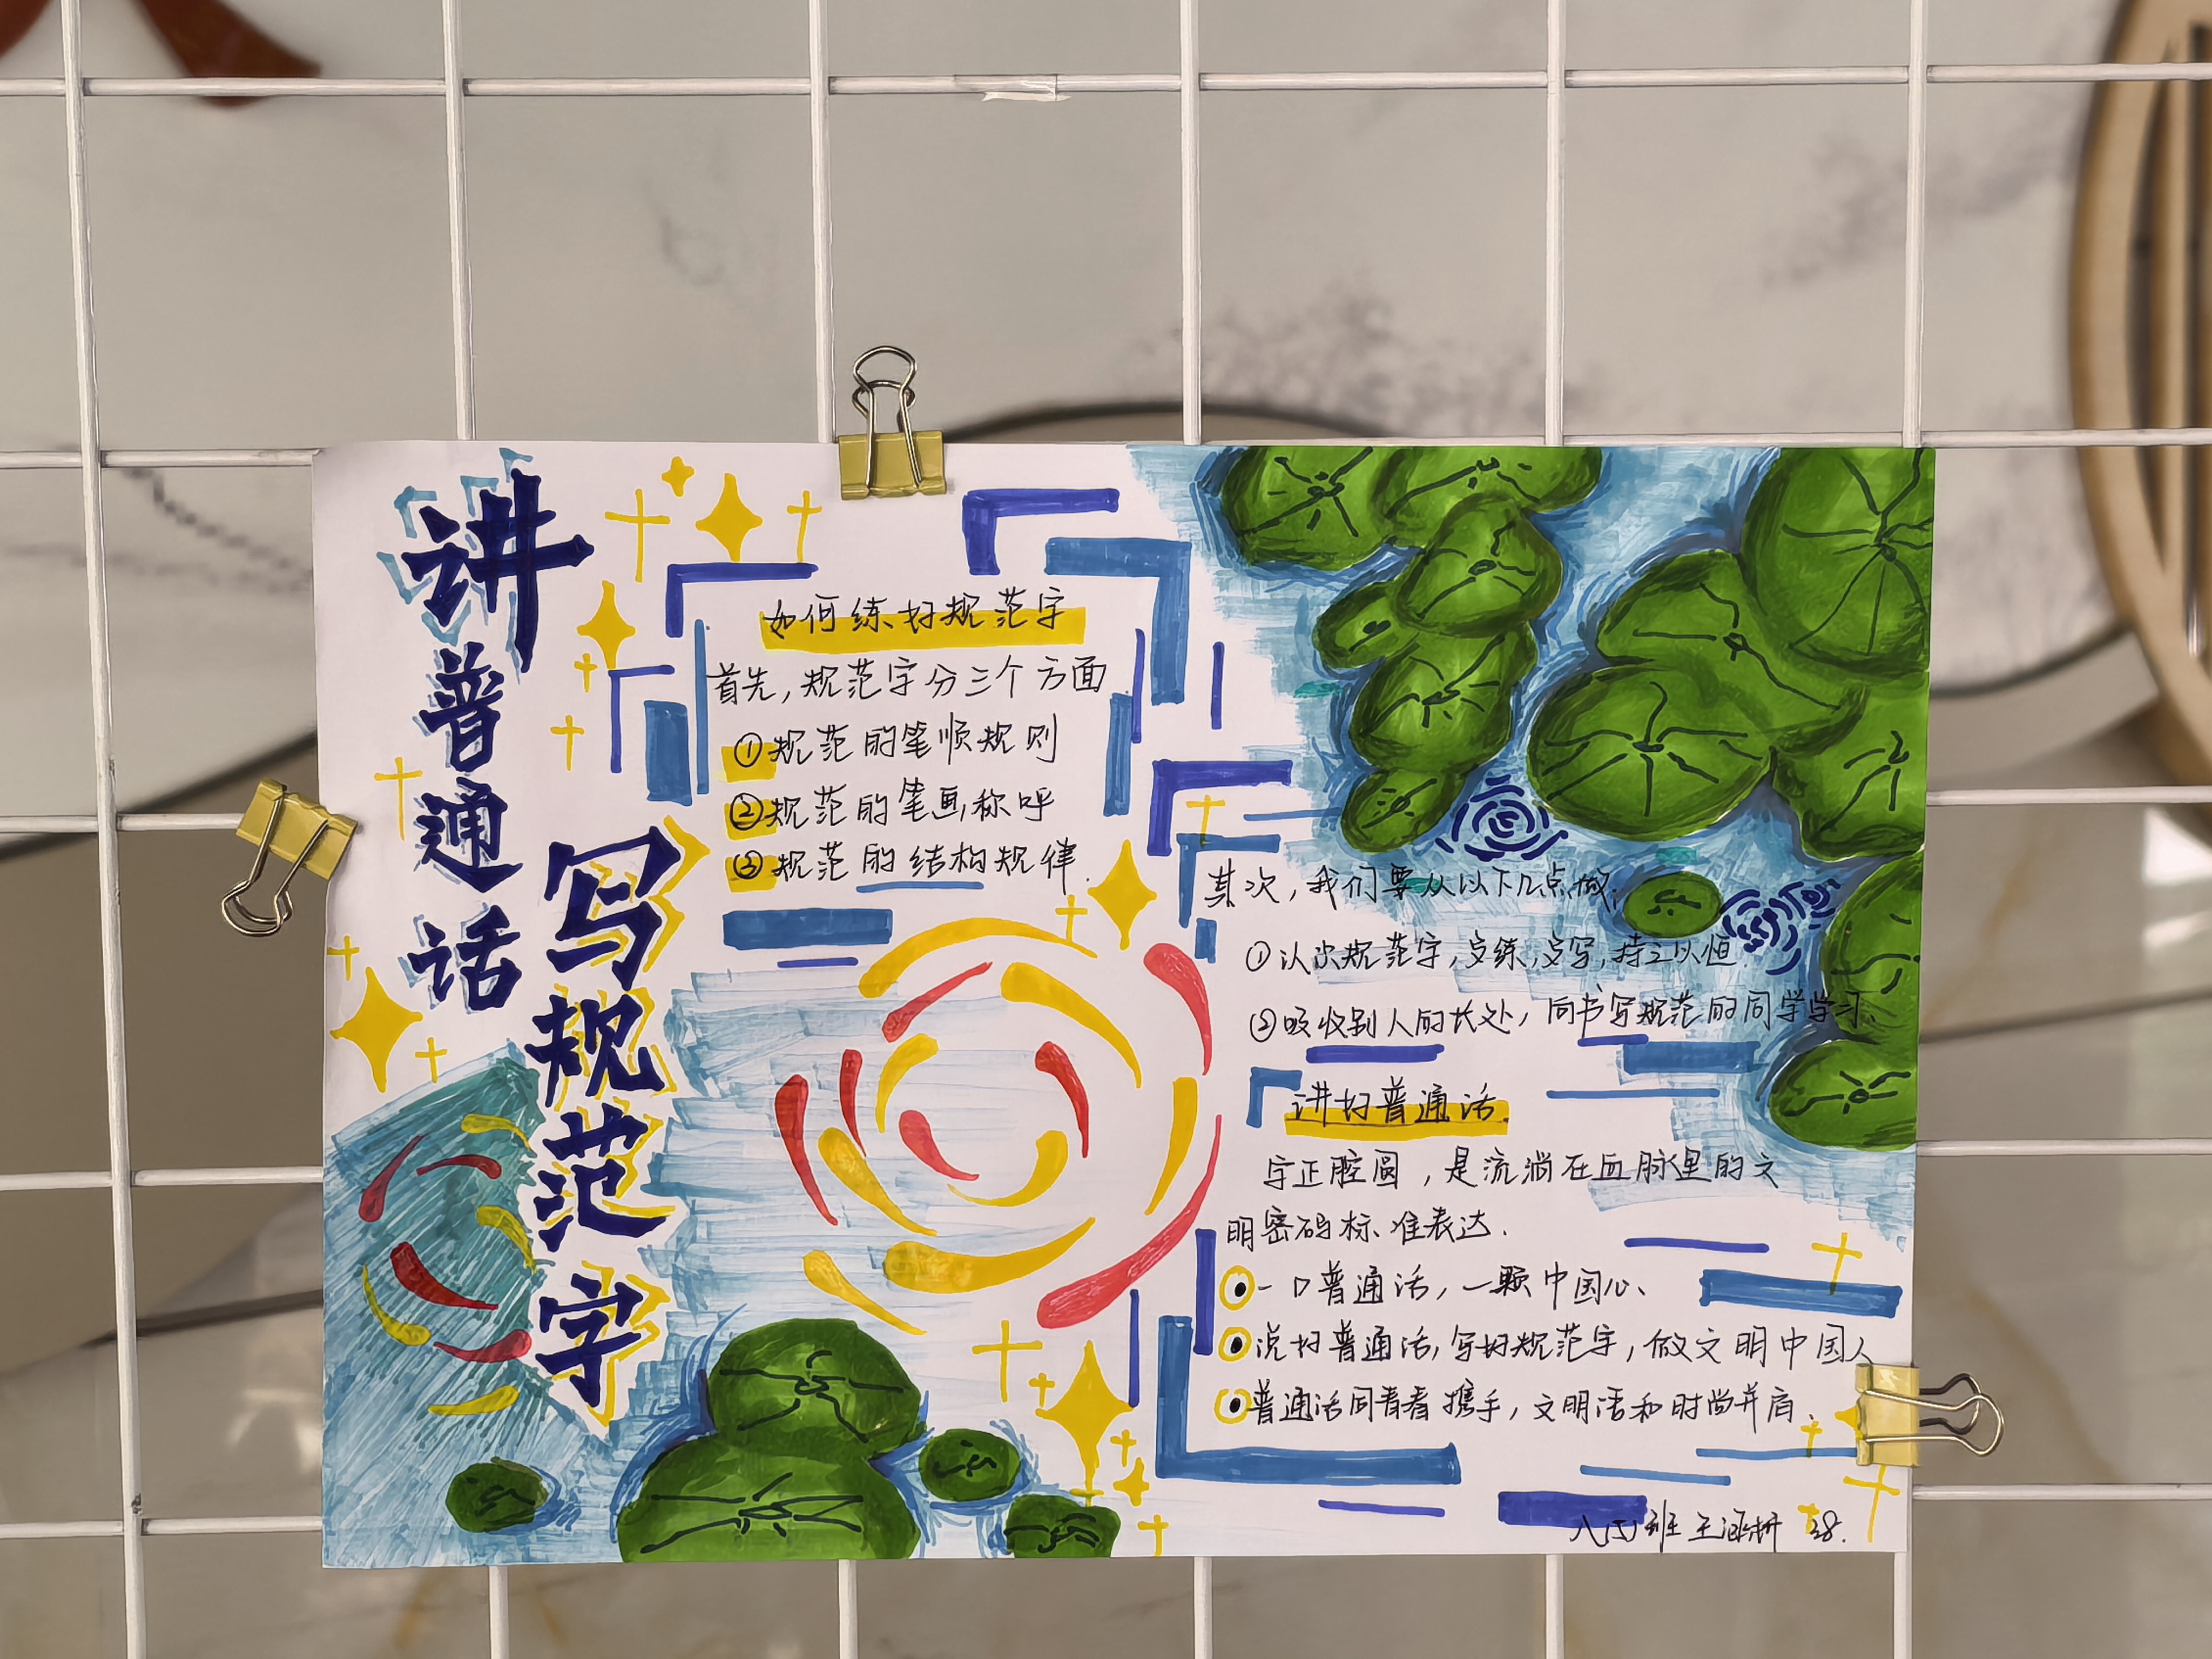 讲普通话
写规范字
如何练好规范字
首先,规范字分三个方面
①规范的笔顺规则
②规范的笔画称呼
③规范的结构规律.
其次,我们要从以下几点做:
①认识规范字,多练,多写,持之以恒.
②吸收别人的长处,向书写规范的同学学习.
讲好普通话.
字正腔圆,是流淌在血脉里的文
明密码标准表达.
一口普通话,一颗中国心、
说好普通话,写好规范字,做文明中国人
普通话同青春携手,文明语和时尚并肩.
八(5)班 王涵 38.